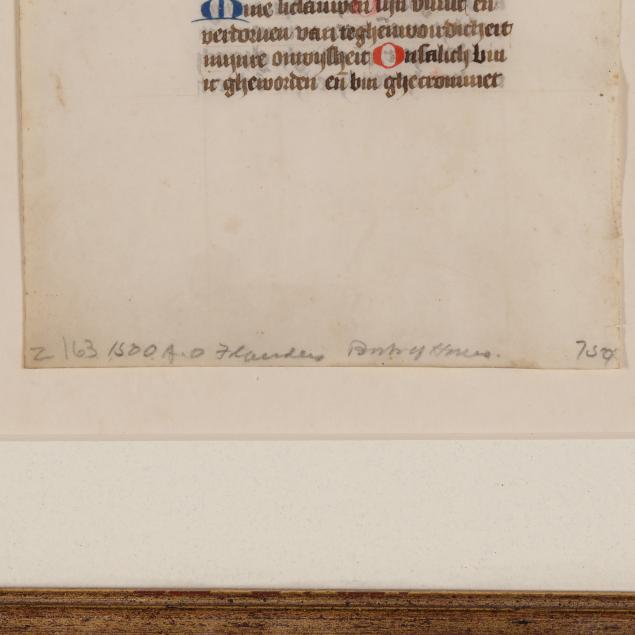 Mine lictauwen sijn vuulich en
vertorven van teghenwoirdicheit
mijnre onwijsheit Onsalich bin
ic gheworden en̄ bin ghecrommet
2 163 1500 A.D Flanders Book of Hours. 750